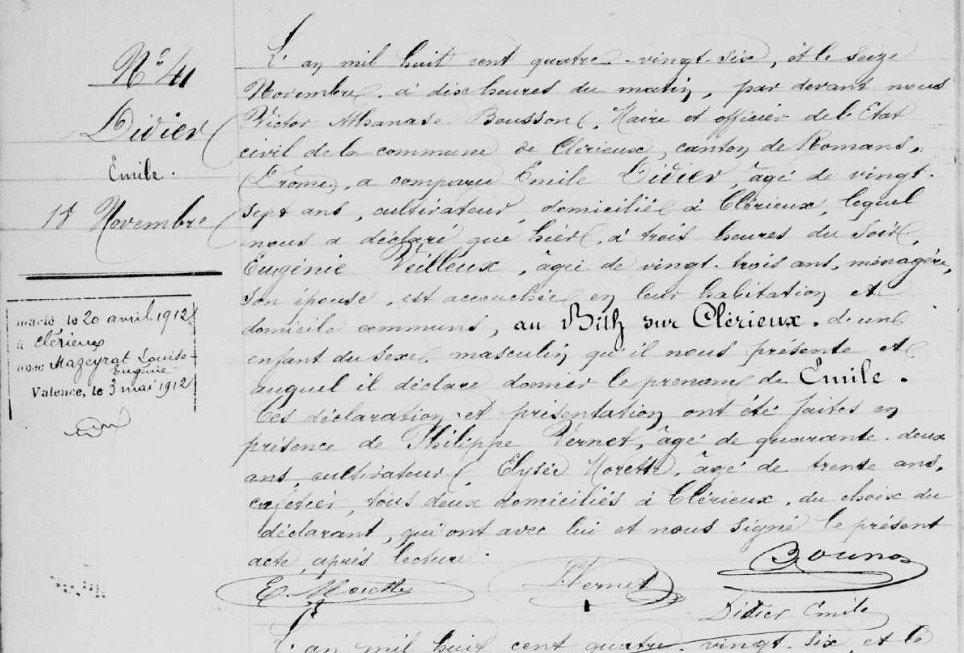 N° 41
Didier
Emile.
15 Novembre
marié le 20 avril 1912
à Clérieux
avec Mazeyrat Louise-
Eugénie
Valence, le 3 mai 1912
L'an mil huit cent quatre-vingt-six, et le seize
Novembre, à dix heures du matin, par devant nous
Victor Athanase Bousson, Maire et officier de l'Etat
civil de la commune de Clérieux, canton de Romans,
(Drôme), a comparu Emile Didier, âgé de vingt-
sept ans, cultivateur, domicilié à Clérieux, lequel
nous a déclaré que hier, à trois heures du soir,
Eugénie Veilleux, âgée de vingt-trois ans, ménagère,
son épouse, est accouchée en leur habitation et
domicile communs, au sur Clérieux, d'un
enfant du sexe masculin qu'il nous présente et
auquel il déclare donner le prénom de Emile.
Ces déclaration et présentation ont été faites en
présence de Philippe Vernet, âgé de quarante-deux
ans, cultivateur, Elysée Morette, âgé de trente ans,
cafetier, tous deux domiciliés à Clérieux, du choix du
déclarant, qui ont avec lui et nous signé le présent
acte, après lecture.
E. Morette Vernet
Didier Emile
L'an mil huit cent quatre-vingt-six, et le